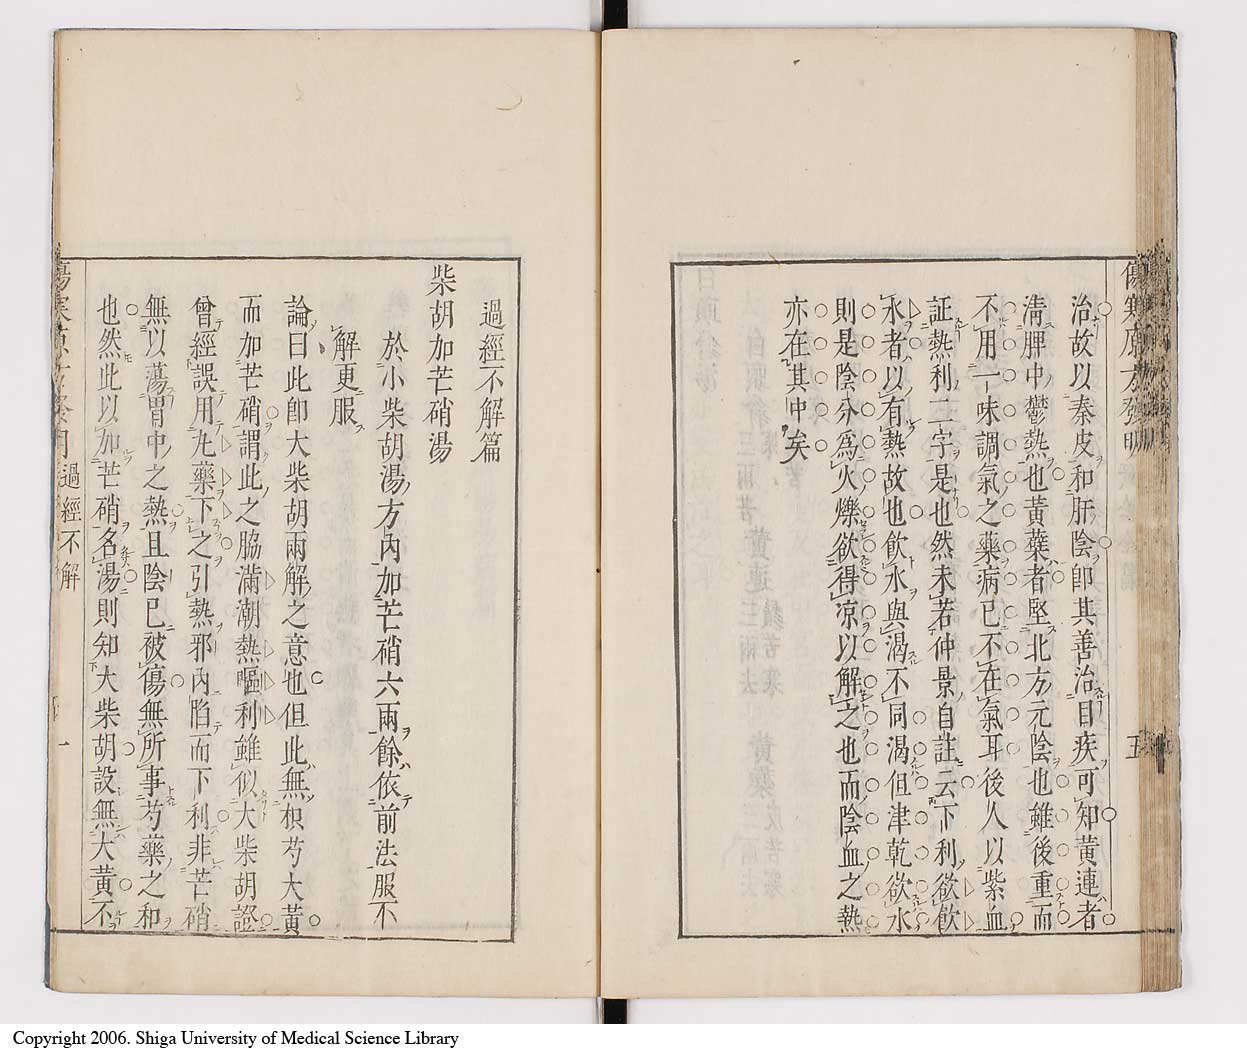 傷寒原方發明
五
治故以秦皮和肝陰卽其善治目疾可知黃連者
淸脾中鬱熱也黃蘗者堅北方元陰也雖後重而
不用一味調氣之藥病已不在氣耳後人以紫血
証熱利二字是也然未若仲景自註云下利欲飮
水者以有熱故也飮水與渴不同渴但津乾欲水
則是陰分爲火爍欲得凉以解之也而陰血之熱
亦在其中矣
過經不解篇
柴胡加芒硝湯
於小柴胡湯方內加芒硝六兩餘依前法服不
解更服
論曰此卽大柴胡兩解之意也但此無枳芍大黃
而加芒硝謂此之脇滿潮熱嘔利雖似大柴胡證
曾經誤用丸藥下之引熱邪內陷而下利非芒硝
無以蕩胃中之熱且陰已被傷無所事芍藥之和
也然此以加芒硝名湯則知大柴胡設無大黃不
過經不解
一
Copyright 2006. Shiga University of Medical Science Library